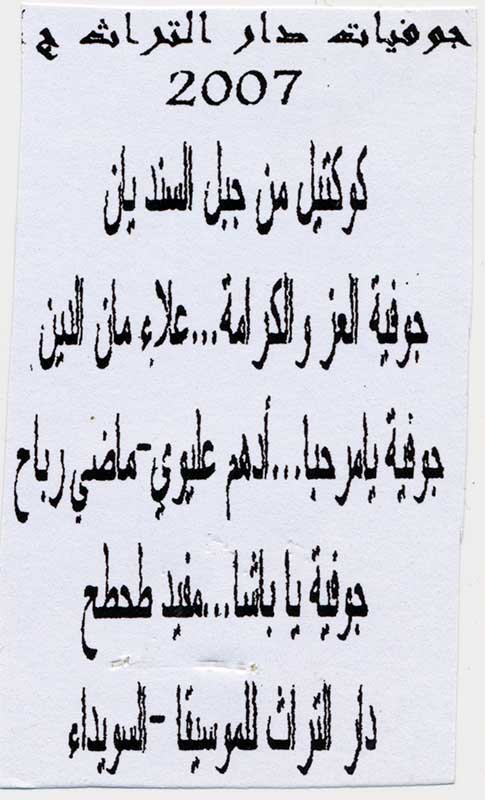 جوفيات دار التراث ج1
2007
كوكتيل من جبل السنديان
جوفية العز والكرامة...علاء مان الدين
جوفية يامرحبا...أدهم عليوي-ماضي رباح
جوفية يا باشا...مفيد طحطح
دار التراث للموسيقا -السويداء